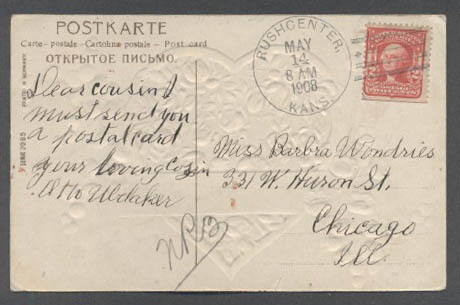 POSTKARTE
Carte-postale-Cartolina postale - Post card
ОТКРЫТОЕ ПИСЬМО.
Dear cousin I
must send you
a postal card
your loving cosin
RUSHCENTER,
MAY
14
8 AM
1908
KANS.
Miss Barbra Wondries
331 W. Huron St.
Chicago
Ill.